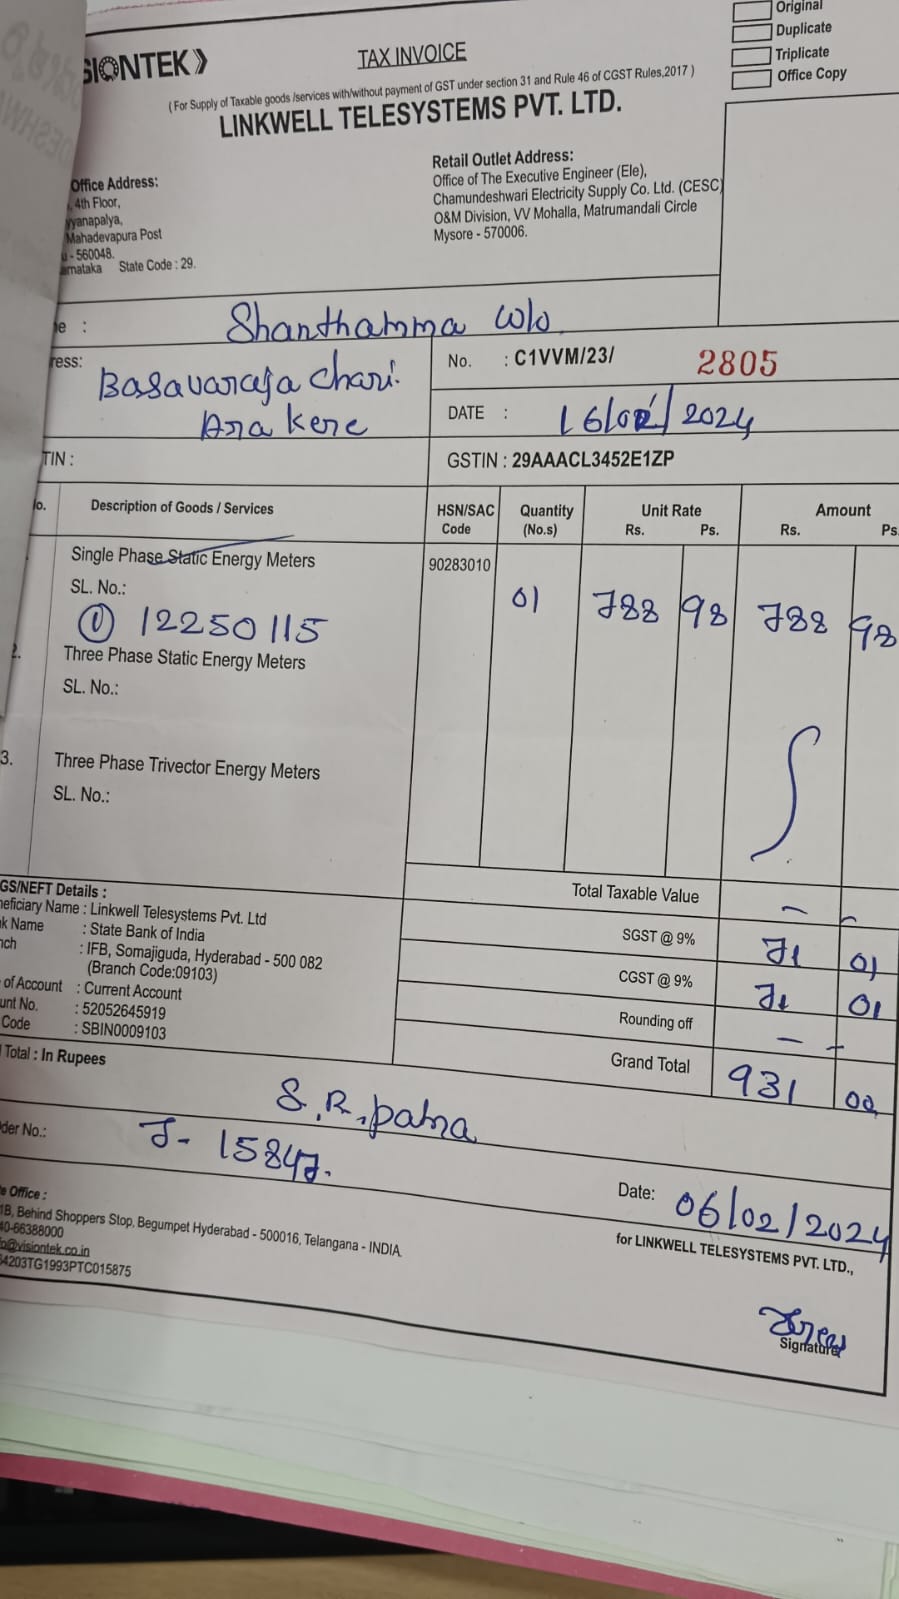 SIONTEK
TAX INVOICE
Original
Duplicate
Triplicate
Office Copy
( For Supply of Taxable goods /services with/without payment of GST under section 31 and Rule 46 of CGST Rules,2017 )
LINKWELL TELESYSTEMS PVT. LTD.
Office Address:
, 4th Floor,
yyanapalya,
Mahadevapura Post
u - 560048.
arnataka State Code : 29.
Retail Outlet Address:
Office of The Executive Engineer (Ele),
Chamundeshwari Electricity Supply Co. Ltd. (CESC)
O&M Division, VV Mohalla, Matrumandali Circle
Mysore - 570006.
e : Shanthamma W/o
ress: Basavaraja Chari.
Arakere
No. : C1VVM/23/ 2805
DATE : 16/02/2024
TIN :
GSTIN : 29AAACL3452E1ZP
o. Description of Goods / Services HSN/SAC Code Quantity (No.s) Unit Rate Rs. Ps. Amount Rs. Ps
Single Phase Static Energy Meters 90283010
SL. No.: 01 788 98 788 98
① 12250115
2. Three Phase Static Energy Meters
SL. No.:
3. Three Phase Trivector Energy Meters
SL. No.:
GS/NEFT Details :
neficiary Name : Linkwell Telesystems Pvt. Ltd
nk Name : State Bank of India
nch : IFB, Somajiguda, Hyderabad - 500 082
(Branch Code:09103)
of Account : Current Account
unt No. : 52052645919
Code : SBIN0009103
Total Taxable Value - -
SGST @ 9% 71 01
CGST @ 9% 71 01
Rounding off - -
Grand Total 931 00
Total : In Rupees
S.R.patna
der No.: J- 15847.
Date: 06/02/2024
for LINKWELL TELESYSTEMS PVT. LTD.,
e Office :
1B, Behind Shoppers Stop, Begumpet Hyderabad - 500016, Telangana - INDIA.
40-66388000
fo@visiontek.co.in
64203TG1993PTC015875
Signature